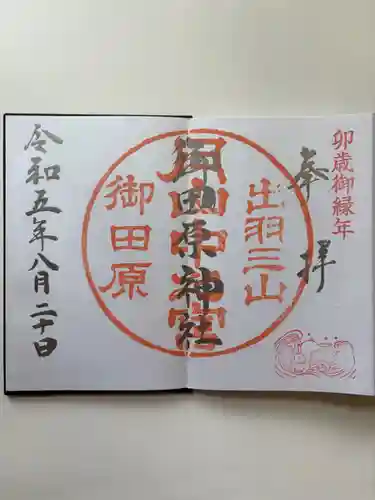 卯歳御縁年
奉拝
出羽三山
御田原神社
御田原
令和五年八月二十日